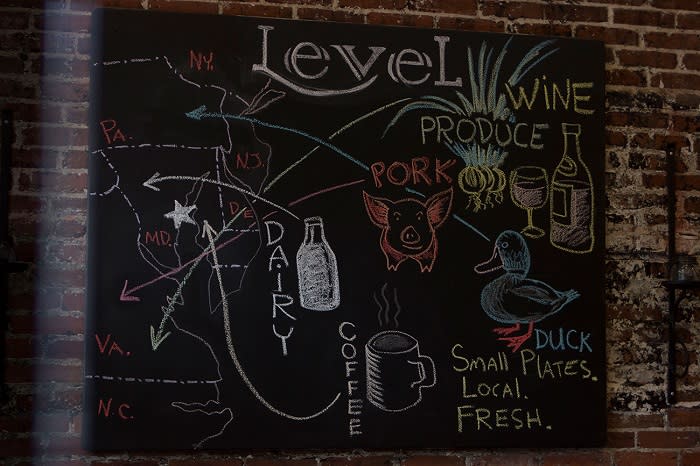 LeveL
NY.
WINE
PRODUCE
Pa.
N.J.
PORK
DE
MD.
DAIRY
DUCK
VA.
COFFEE
SMALL PLATES.
LOCAL.
FRESH.
N.C.